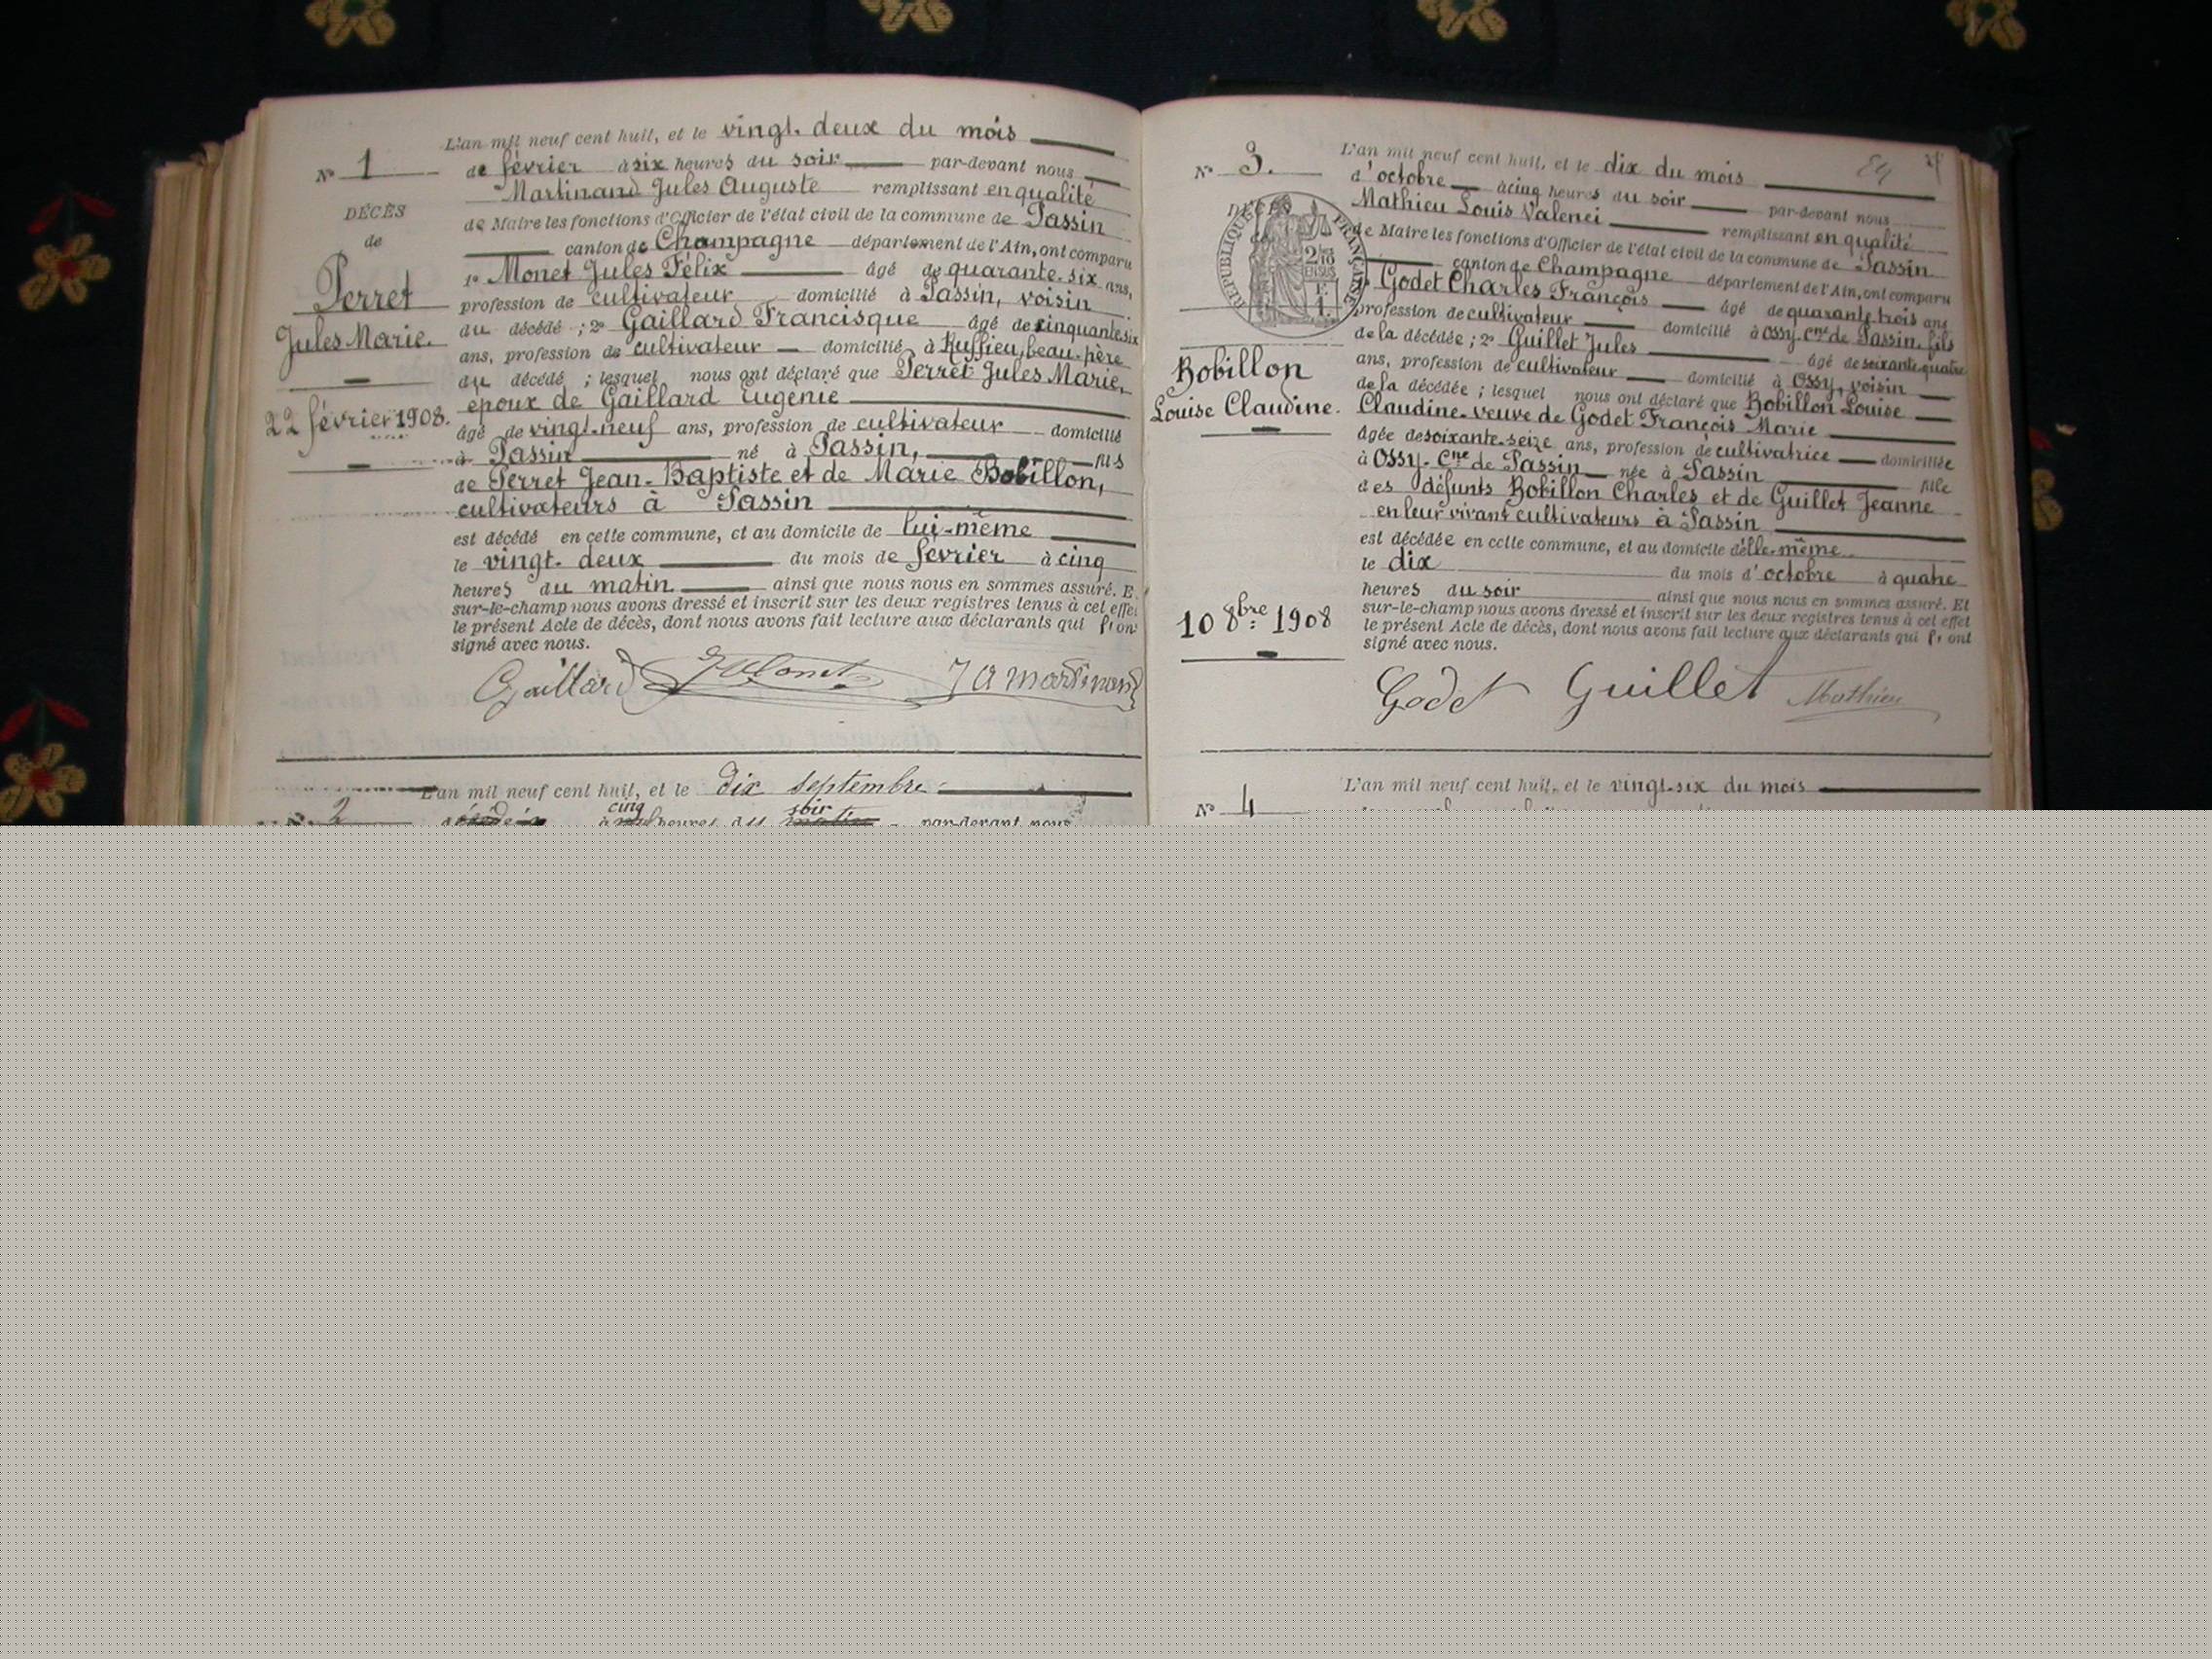 L'an mil neuf cent huit, et le vingt. deux du mois
N° 1
de février à six heures du soir par-devant nous
Martinand Jules Auguste remplissant en qualité
DÉCÈS
de Maire les fonctions d'Officier de l'état civil de la commune de Passin
de
canton de Champagne département de l'Ain, ont comparu
1° Monet Jules Félix âgé de quarante. six ans,
Perret
profession de cultivateur domicilié à Passin, voisin
Jules Marie.
du décédé ; 2° Gaillard Francisque âgé de cinquante six
ans, profession de cultivateur domicilié à Ruffieu, beau-père
du décédé ; lesquel nous ont déclaré que Perret Jules Marie,
époux de Gaillard Eugénie
22 février 1908.
âgé de vingt-neuf ans, profession de cultivateur domicilié
à Passin né à Passin, fils
de Perret Jean-Baptiste et de Marie Bobillon,
cultivateurs à Passin
est décédé en cette commune, et au domicile de lui-même
le vingt. deux du mois de février à cinq
heures du matin ainsi que nous nous en sommes assuré. E
sur-le-champ nous avons dressé et inscrit sur les deux registres tenus à cet effet
le présent Acte de décès, dont nous avons fait lecture aux déclarants qui l'ont
signé avec nous.
Gaillard J Monet J A Martinand
L'an mil neuf cent huit, et le dix septembre
N° 2
cinq soir
à heures du matin par-devant nous
L'an mil neuf cent huit, et le dix du mois
N° 3.
d'octobre à cinq heures du soir par-devant nous
Mathieu Louis Valenci remplissant en qualité
DÉCÈS
RÉPUBLIQUE FRANÇAISE
de Maire les fonctions d'Officier de l'état civil de la commune de Passin
canton de Champagne département de l'Ain, ont comparu
Godet Charles François âgé de quarante trois ans
profession de cultivateur domicilié à Ossy, Cne de Passin, fils
de la décédée ; 2° Guillet Jules âgé de soixante quatre
Bobillon
ans, profession de cultivateur domicilié à Ossy, voisin
Louise Claudine.
de la décédée ; lesquel nous ont déclaré que Bobillon Louise
Claudine. veuve de Godet François Marie
âgée de soixante-seize ans, profession de cultivatrice domiciliée
à Ossy. Cne de Passin née à Passin fille
des défunts Bobillon Charles et de Guillet Jeanne
en leur vivant cultivateurs à Passin
est décédée en cette commune, et au domicile d'elle-même
le dix du mois d'octobre à quatre
heures du soir ainsi que nous nous en sommes assuré. Et
10 8bre 1908
sur-le-champ nous avons dressé et inscrit sur les deux registres tenus à cet effet
le présent Acte de décès, dont nous avons fait lecture aux déclarants qui l'ont
signé avec nous.
Godet Guillet Mathieu
L'an mil neuf cent huit, et le vingt-six du mois
N° 4